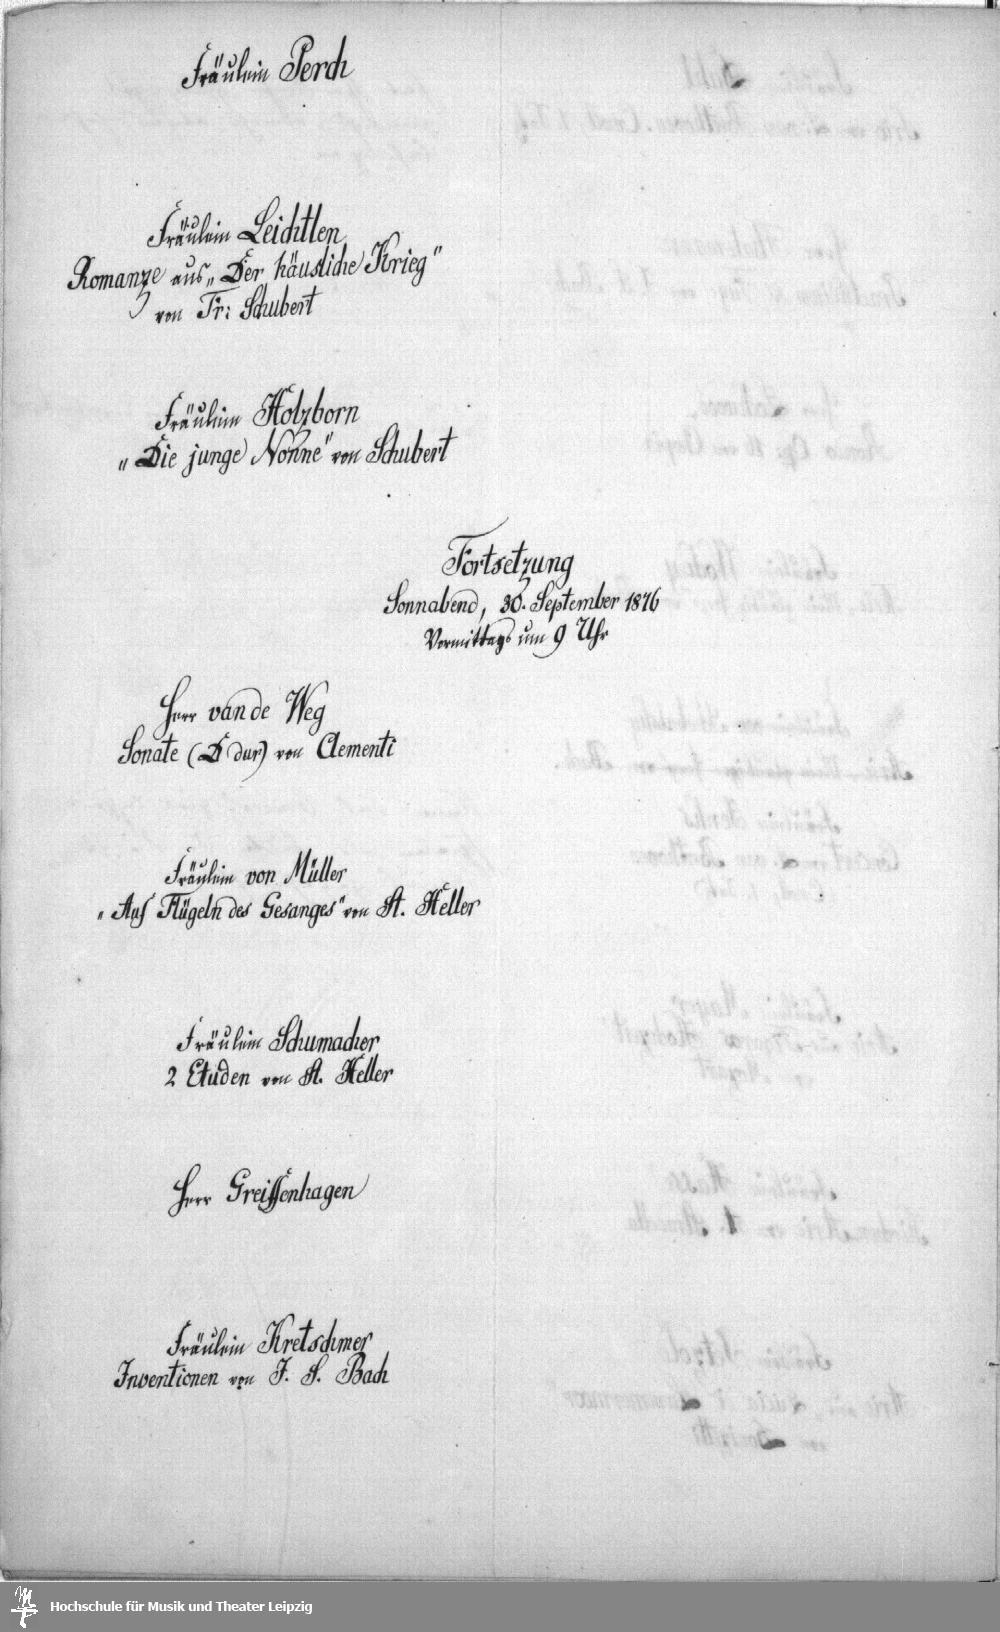 Fräulein Perch
Fräulein Leichtlen
Romanze aus „Der häusliche Krieg"
von Fr: Schubert
Fräulein Holzborn
„Die junge Nonne" von Schubert
Fortsetzung
Sonnabend, 30. September 1876
Vormittags um 9 Uhr
Herr van de Weg
Sonate (D dur) von Clementi
Fräulein von Müller
„Auf Flügeln des Gesanges" von St. Heller
Fräulein Schumacher
2 Etuden von St. Heller
Herr Greiffenhagen
Fräulein Kretschmer
Inventionen von J. S. Bach
Hochschule für Musik und Theater Leipzig